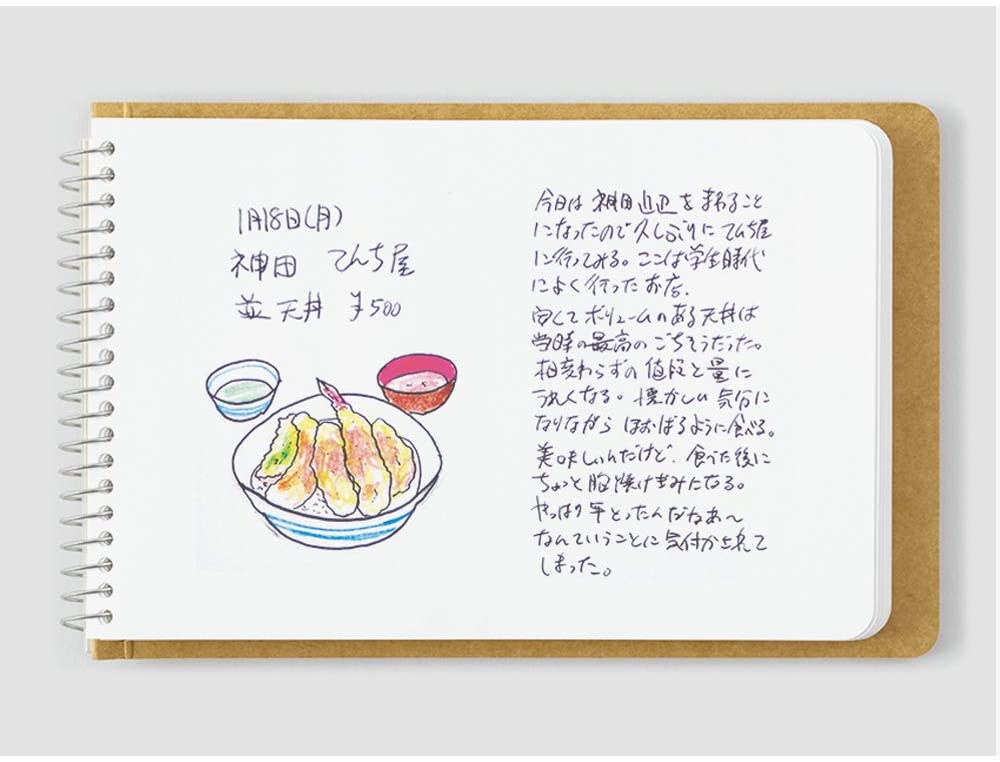 1月18日(月)
神田 てんち屋
並 天丼 ¥500
今日は 神田 辺を まわること
になったので 久しぶりに てんち屋
に行ってみる。ここは 学生時代
によく行った お店.
安くて ボリュームのある 天丼は
当時の最高の ごちそうだった。
相変わらずの 値段と 量に
うれしくなる。懐かしい 気分に
なりながら ほおばるように食べる。
美味しいんだけど、食べた後に
ちょっと 胸焼けぎみになる。
やっぱり 年とったんだなあ〜
なんていうことに 気付かされて
しまった。